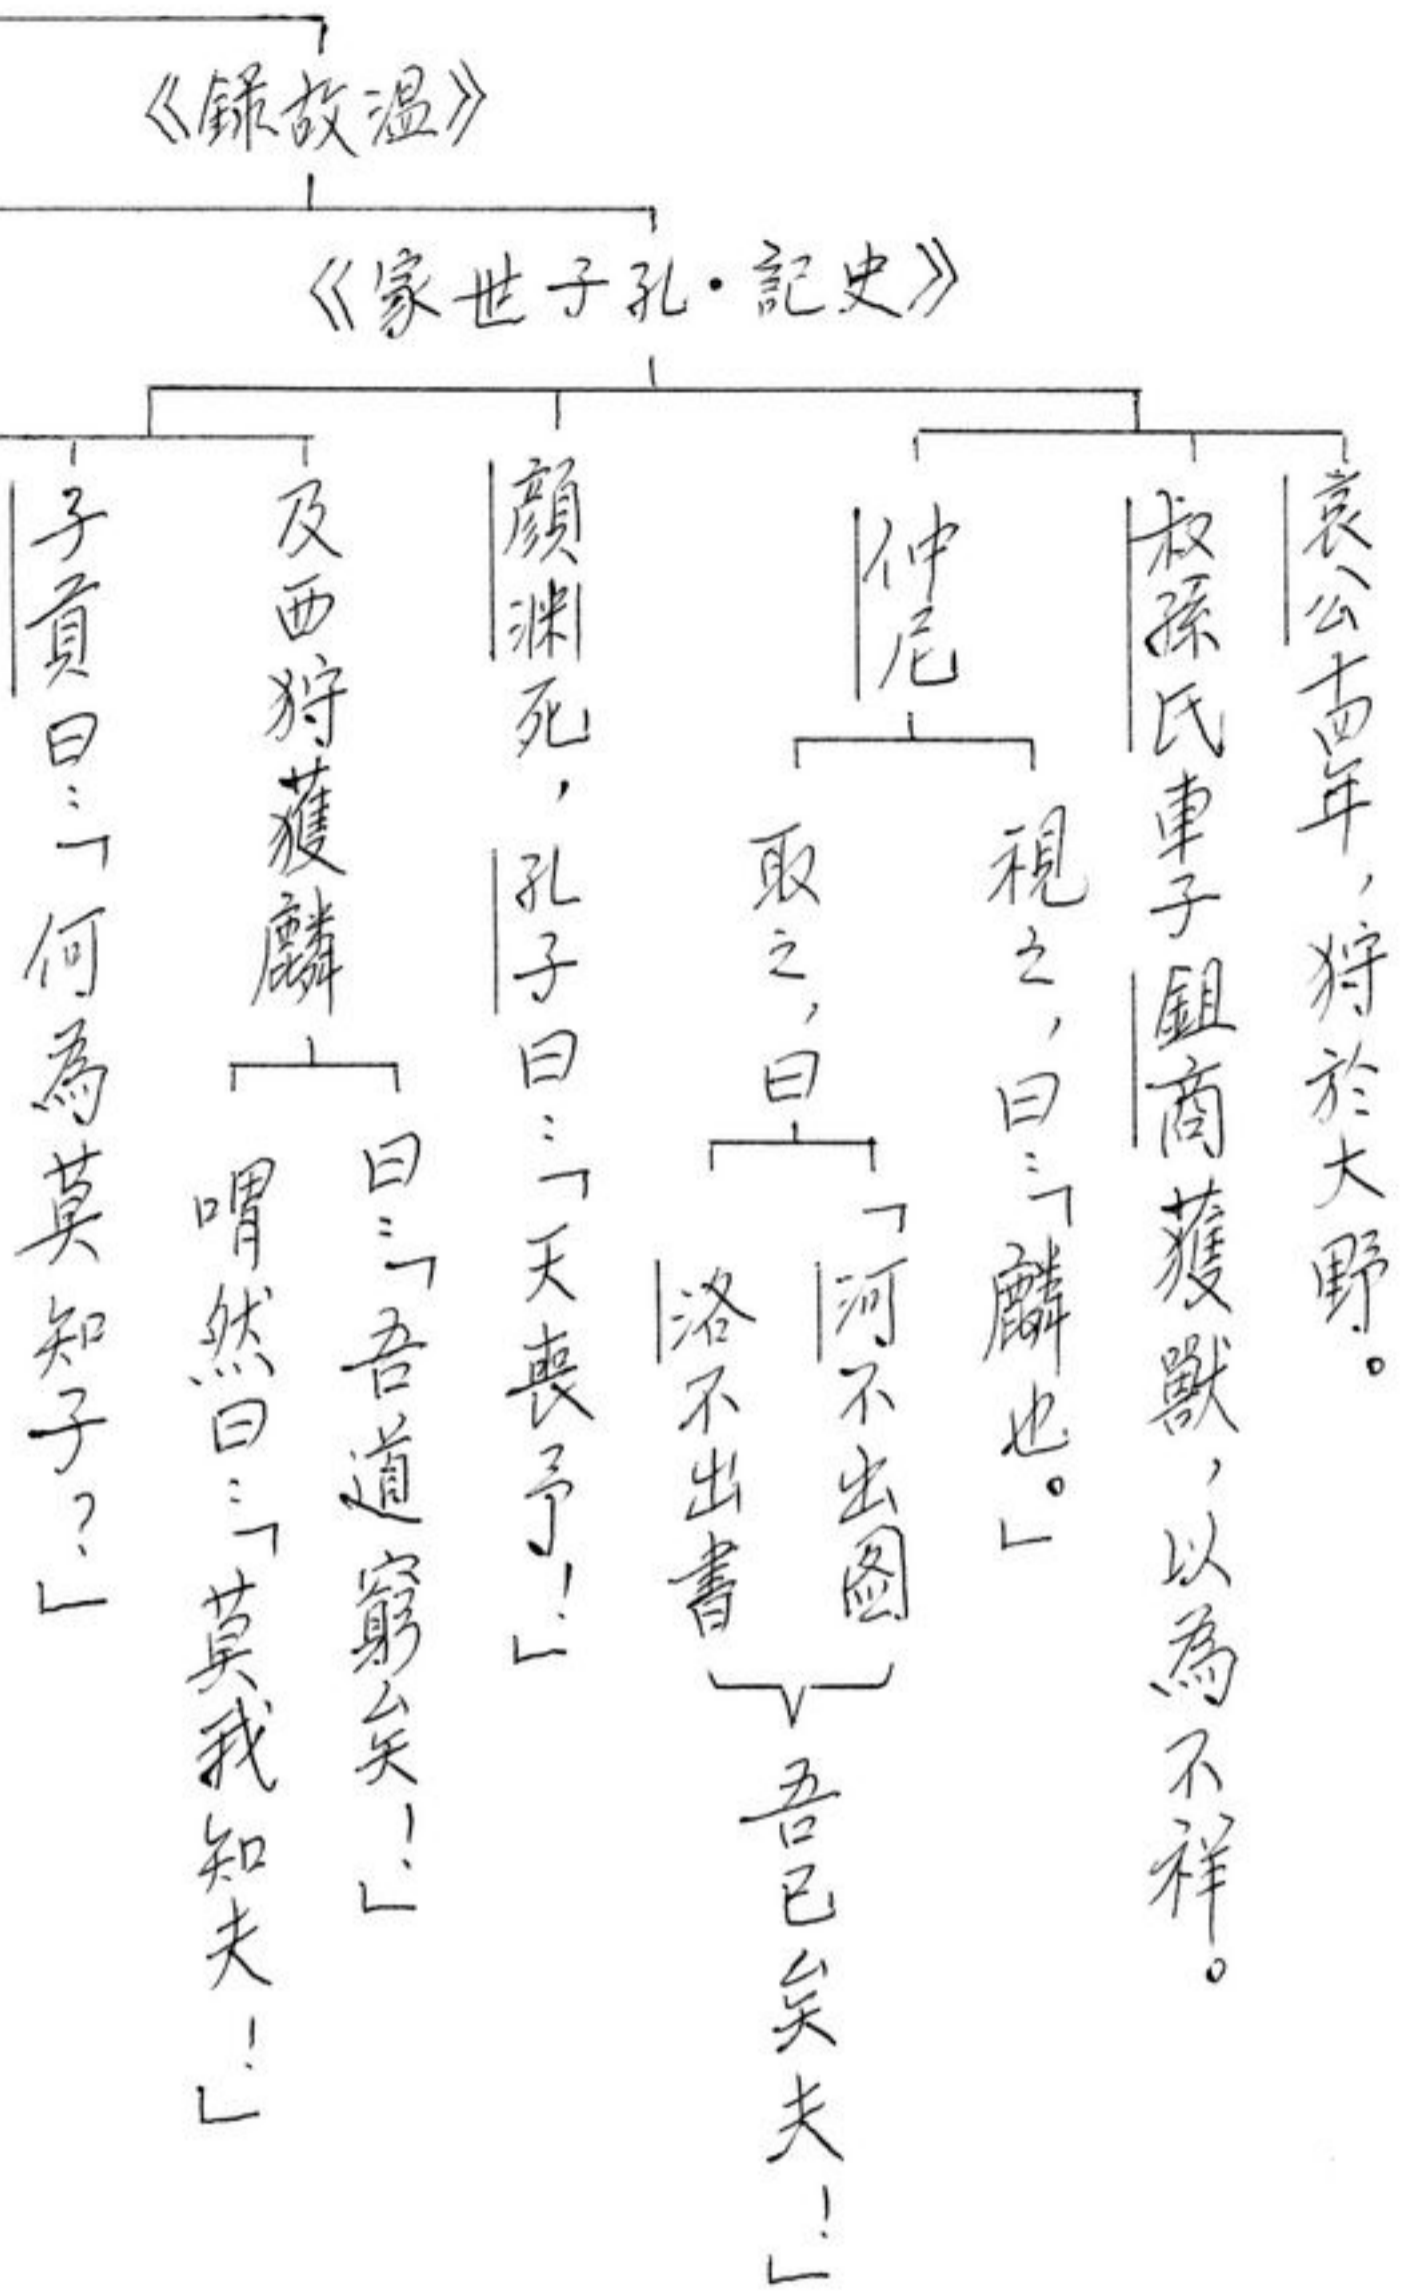 《温故録》
《史記·孔子世家》
哀公十四年，狩於大野。
叔孫氏車子鉏商獲獸，以為不祥。
仲尼
視之，曰：「麟也。」
取之，曰
「河不出图
洛不出書
吾已矣夫！」
顏渊死，孔子曰：「天喪予！」
及西狩獲麟
曰：「吾道窮矣！」
喟然曰：「莫我知夫！」
子貢曰：「何為莫知子？」